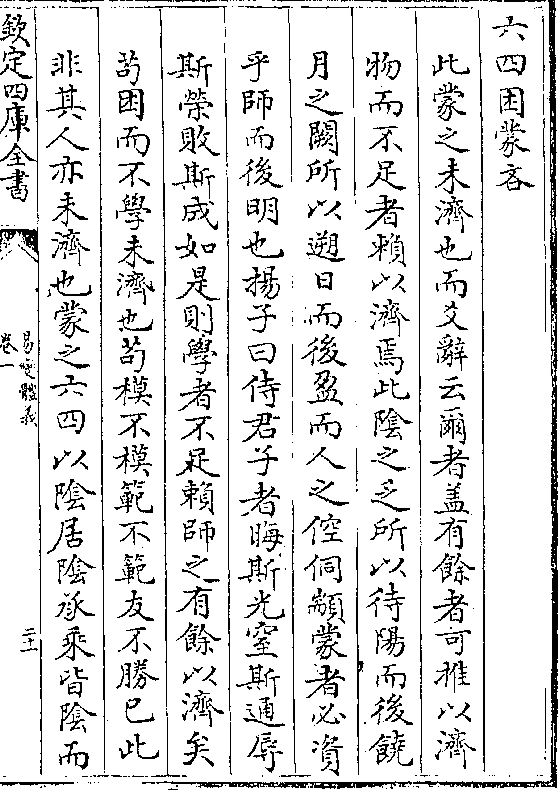 六四困蒙吝
此蒙之未濟也而爻辭云爾者盖有餘者可推以濟
物而不足者頼以濟焉此陰之乏所以待陽而後饒
月之闕所以遡日而後盈而人之倥侗顓蒙者必資
乎師而後明也揚子曰侍君子者晦斯光窒斯通辱
斯榮敗斯成如是則學者不足頼師之有餘以濟矣
苟困而不學未濟也苟模不模範不範友不勝已此
非其人亦未濟也蒙之六四以陰居陰承乗皆陰而
欽定四庫全書
易變體義
卷一
二十